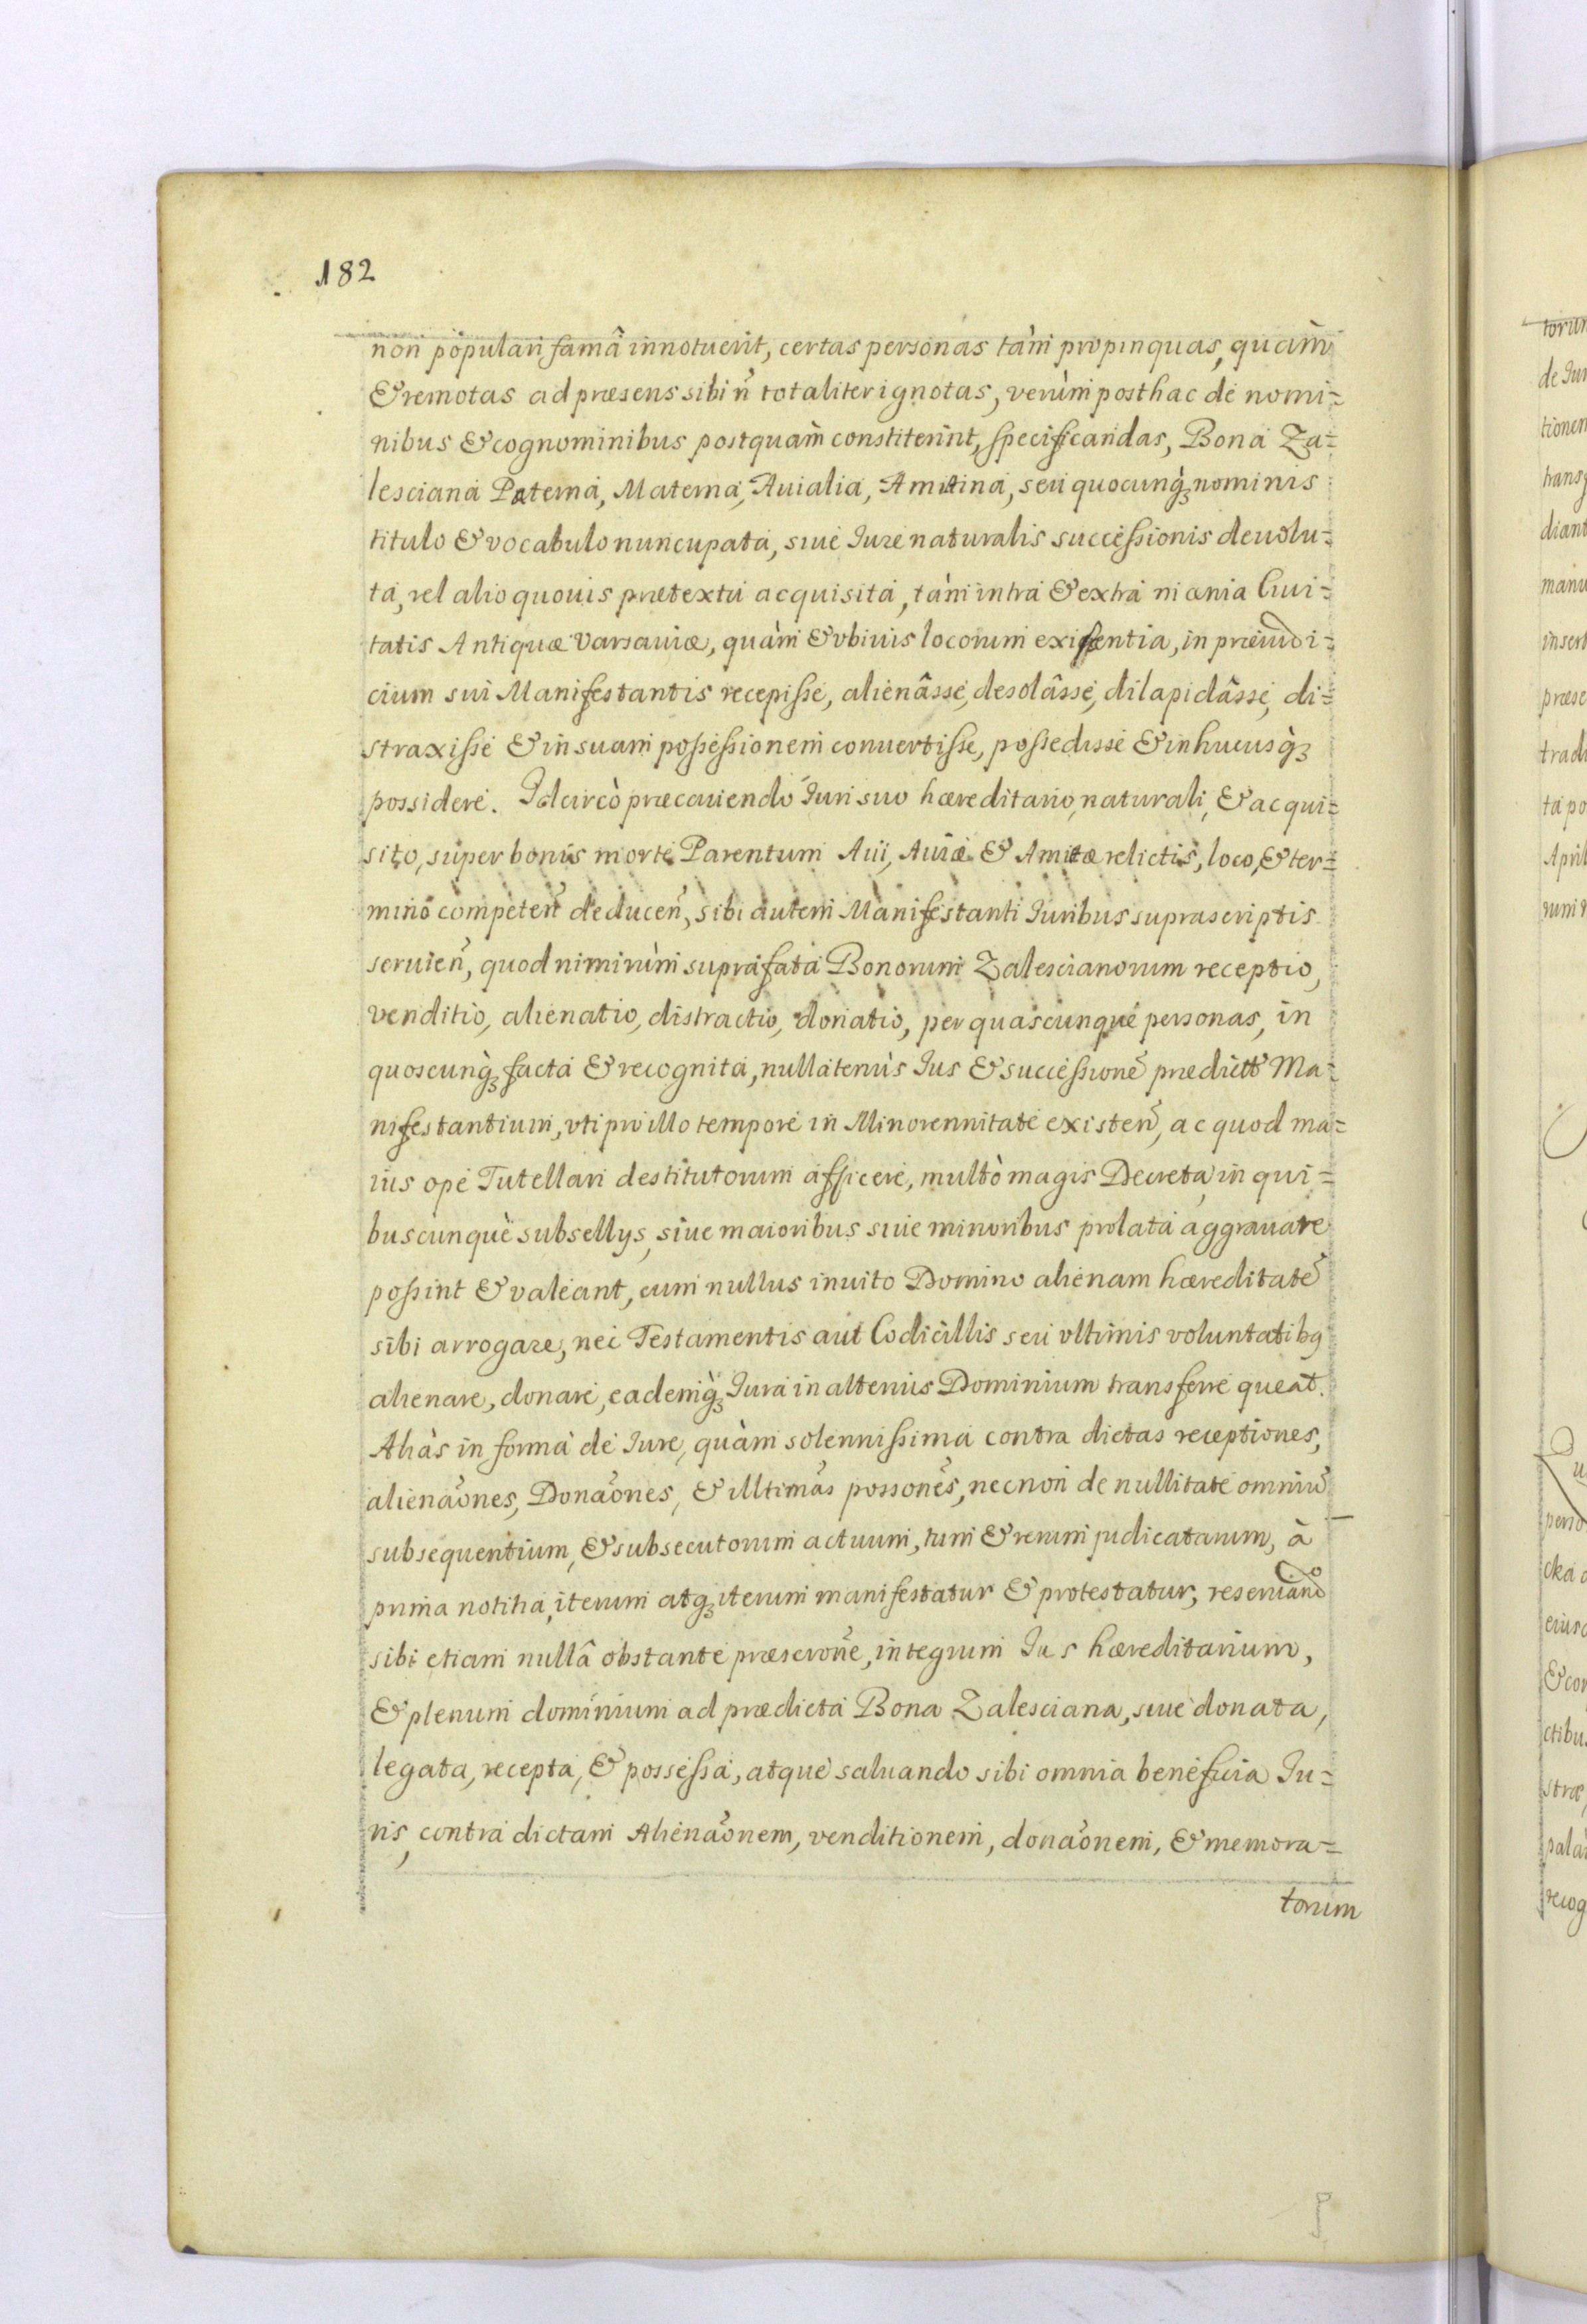 182
non populari famâ innotuerit, certas personas tàm propinquas, quàm
& remotas ad præsens sibi ñ totaliter ignotas, verùm posthac de nomi=
nibus & cognominibus postquam constiterint, specificandas, Bona Za=
lesciana Paterna, Materna, Auialia, Amitina, seu quocunq́ nominis
titulo & vocabulo nuncupata, siue Iure naturalis successionis deuolu=
ta, vel alio quouis prætextu acquisita, tàm intra & extra mænia Ciui=
tatis Antiquæ Varsauiæ, quàm & vbiuis locorum existentia, in præiudi=
cium sui Manifestantis recepisse, alienâsse, desolâsse, dilapidâsse, di=
straxisse & in suam possessionem conuertisse, possedisse & in hucusq́
possidere. Idcircò præcauiendo Iuri suo hæreditario, naturali, & acqui=
sito, super bonis morte Parentum Aui, Auiæ & Amitæ relictis, loco, & ter=
mino competeñ deduceñ, sibi autem Manifestanti Iuribus suprascriptis
seruieñ, quod nimirùm supràfata Bonorum Zalescianorum receptio,
venditio, alienatio, distractio, donatio, per quascunque personas, in
quoscunq́ facta & recognita, nullatenùs Ius & successionẽ prædictt Ma=
nifestantium, vti pro illo tempore in Minorennitate existeñ, ac quod ma=
ius ope Tutellari destitutorum afficere, multò magis Decreta in qui=
buscunque subsellys, siue maioribus siue minoribus prolata aggrauare
possint & valeant, cum nullus inuito Domino alienam hæreditatẽ
sibi arrogare, nec Testamentis aut Codicillis seu vltimis voluntatibꝯ
alienare, donare, eademq́ Iura in alterius Dominium transferre queat.
Aliàs in forma de Iure, quàm solennissima contra dictas receptiones,
alienaõnes, Donaõnes, & illtimãs possonẽs, necnon de nullitate omniũ
subsequentium, & subsecutorum actuum, tum & rerum judicatarum, à
prima notitia, iterum atq́ iterum manifestatur & protestatur, reseruando
sibi etiam nullâ obstante præscroñe, integrum Ius hæreditarium,
& plenum dominium ad prædicta Bona Zalesciana, siue donata,
legata, recepta, & possessa, atque saluando sibi omnia beneficia Iu=
ris, contra dictam Alienaõnem, venditionem, donaõnem, & memora=
torum